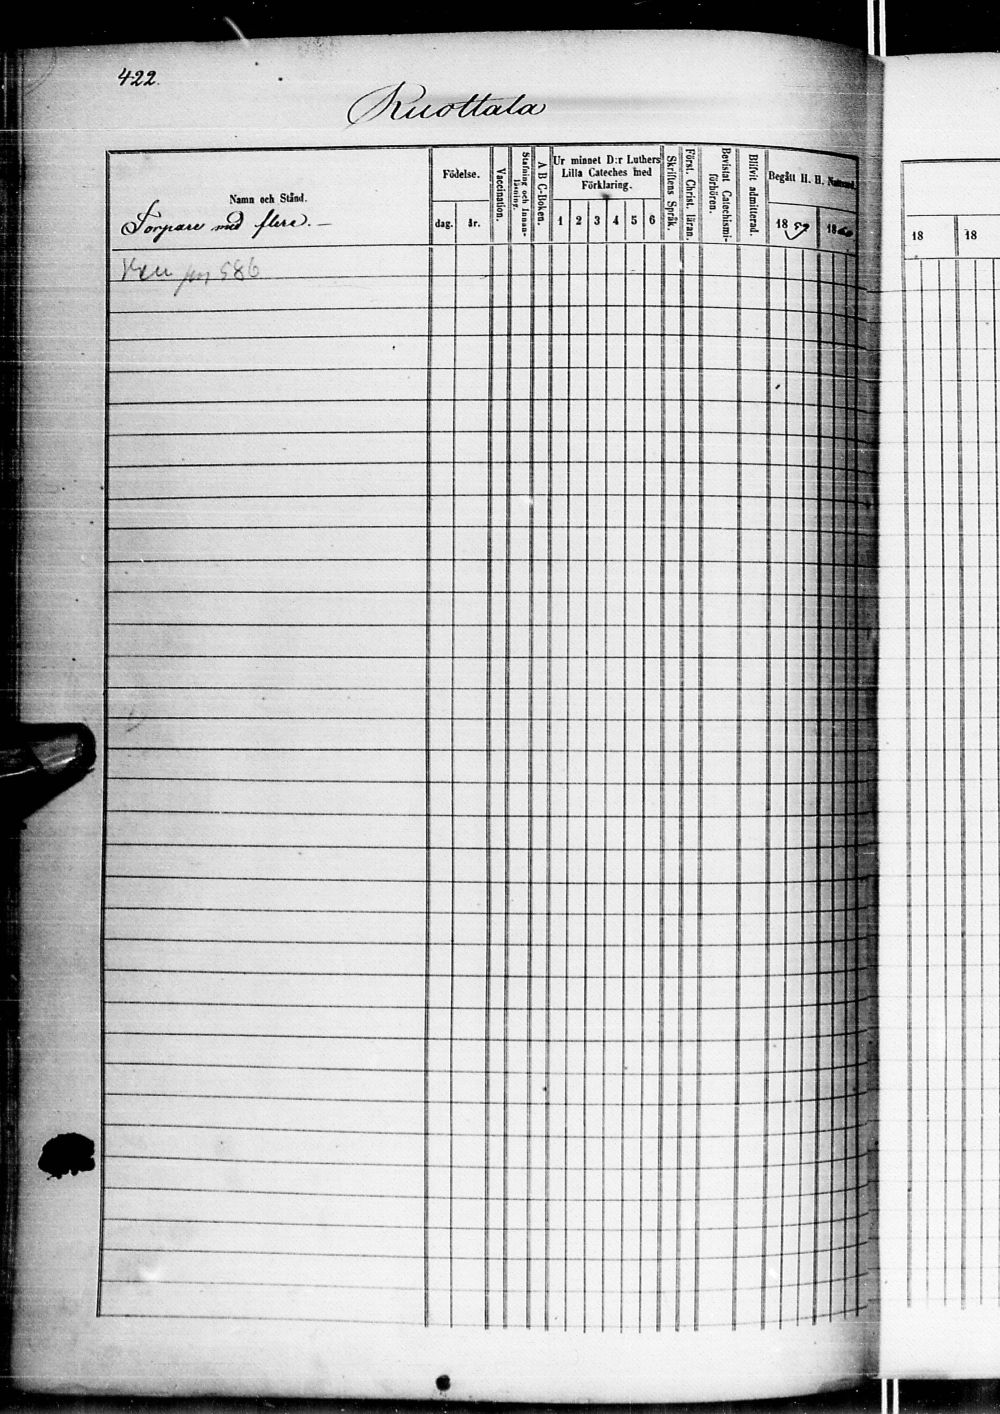 422.
Ruottala
Namn och Stånd.
Torpare med flere. —
Födelse.
dag. år.
Vaccination.
Stafning och Innan-
läsning.
A B C-Boken.
Ur minnet D:r Luthers
Lilla Cateches med
Förklaring.
1 2 3 4 5 6
Skriftens Språk.
Först. Christ. läran.
Bevistat Catechismi-
förhören.
Blifvit admitterad.
Begått H. H. Nattvard.
1859 1860
586
18 18